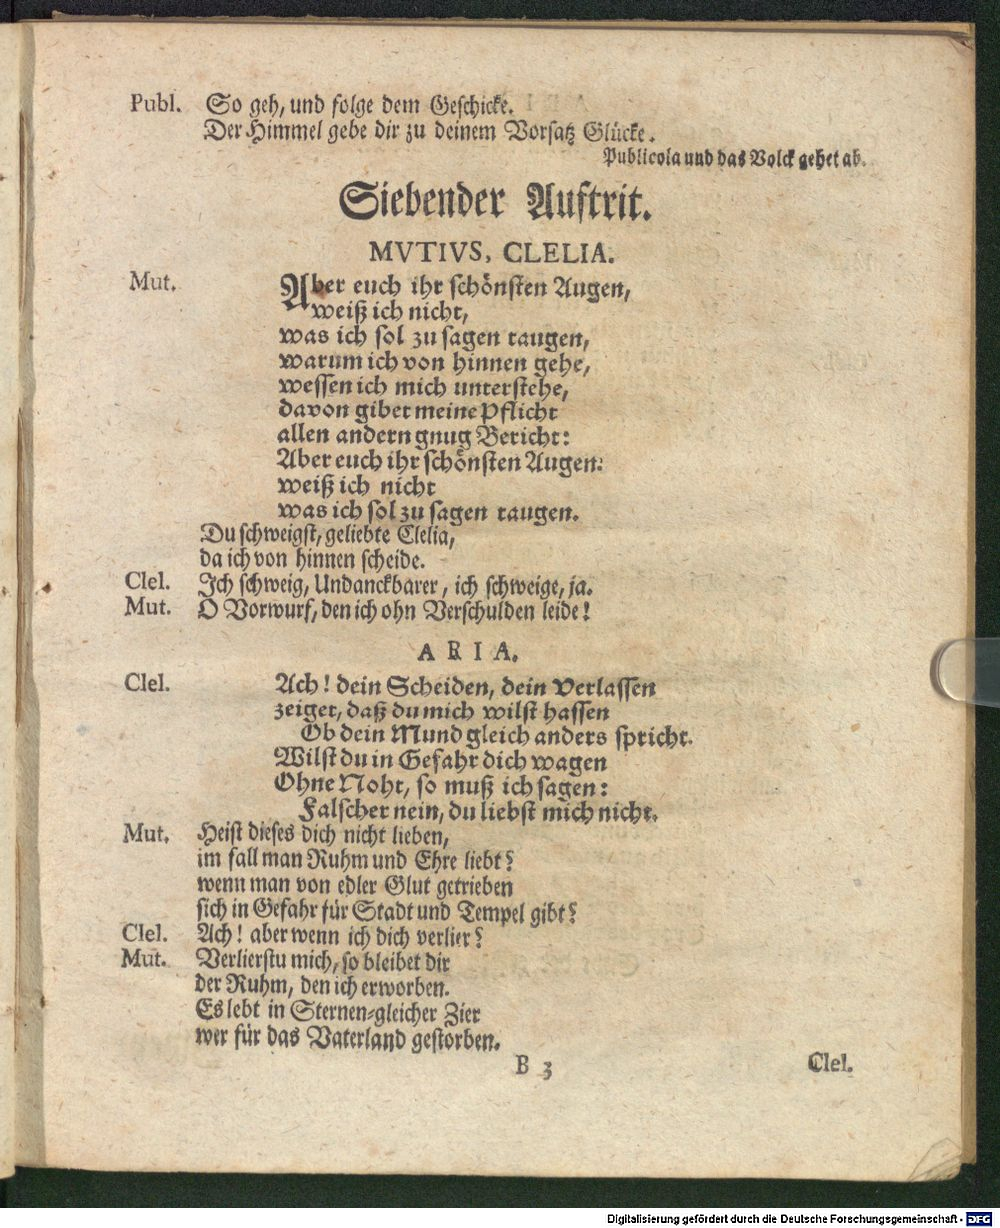 Publ. So geh, und folge dem Geschicke.
Der Himmel gebe dir zu deinem Vorsatz Glücke.
Publicola und das Volck gehet ab.
Siebender Auftrit.
MVTIVS, CLELIA.
Mut. Aber euch ihr schönsten Augen,
weiß ich nicht,
was ich sol zu sagen taugen,
warum ich von hinnen gehe,
wessen ich mich unterstehe,
davon gibet meine Pflicht
allen andern gnug Bericht:
Aber euch ihr schönsten Augen:
weiß ich nicht
was ich sol zu sagen taugen.
Du schweigst, geliebte Clelia,
da ich von hinnen scheide.
Clel. Ich schweig, Undanckbarer, ich schweige, ja.
Mut. O Vorwurf, den ich ohn Verschulden leide!
ARIA.
Clel. Ach! dein Scheiden, dein Verlassen
zeiget, daß du mich wilst hassen
Ob dein Mund gleich anders spricht.
Wilst du in Gefahr dich wagen
Ohne Noht, so muß ich sagen:
Falscher nein, du liebst mich nicht.
Mut. Heist dieses dich nicht lieben,
im fall man Ruhm und Ehre liebt?
wenn man von edler Glut getrieben
sich in Gefahr für Stadt und Tempel gibt?
Clel. Ach! aber wenn ich dich verlier?
Mut. Verlierstu mich, so bleibet dir
der Ruhm, den ich erworben.
Es lebt in Sternen-gleicher Zier
wer für das Vaterland gestorben.
B 3 Clel.
Digitalisierung gefördert durch die Deutsche Forschungsgemeinschaft - DFG